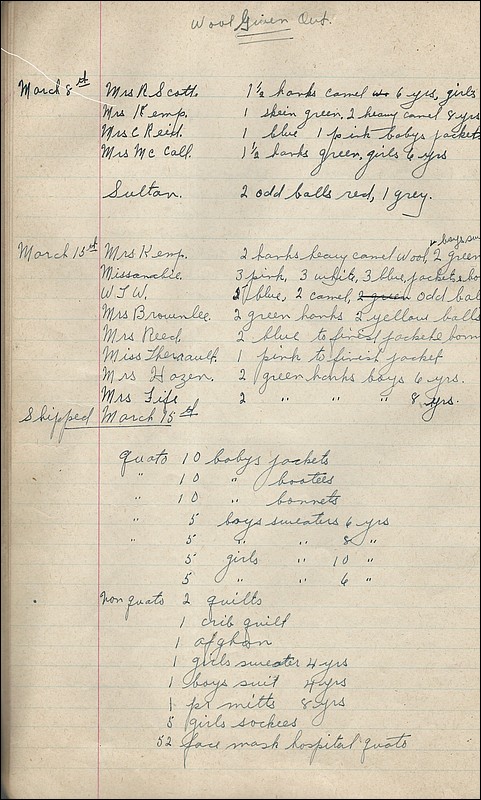 Wool Given Out.
March 8st Mrs R Scott. 1½ hanks camel 6 yrs, girls
Mrs Kemp. 1 skein green, 2 heavy camel 8 yrs
Mrs C Reid. 1 blue 1 pink babys jackets
Mrs Mc Call. 1½ hanks green, girls 6 yrs
Sultan. 2 odd balls red, 1 grey.
boys
March 15st Mrs Kemp. 2 hanks heavy camel wool, 2 green
Missanabie. 3 pink, 3 white, 3 blue, jackets &
W.T.W. 2 blue, 2 camel, 2 green odd bal
Mrs Brownlee. 2 green hanks 2 yellow balls
Mrs Reed. 2 blue to finish jacket & bonn
Miss Therrault. 1 pink to finish jacket
Mrs Hazen. 2 green hanks boys 6 yrs.
Mrs Fife 2 " " " 8 yrs.
Shipped March 15st
quato 10 babys jackets
" 10 " bootees
" 10 " bonnets
" 5 boys sweaters 6 yrs
" 5 " " 8 "
5 girls " 10 "
5 " " 6 "
Non quato 2 quilts
1 crib quilt
1 afghan
1 girls sweater 4 yrs
1 boys suit 4 yrs
1 pr mitts 8 yrs
5 girls sockees
52 face mask hospital quato